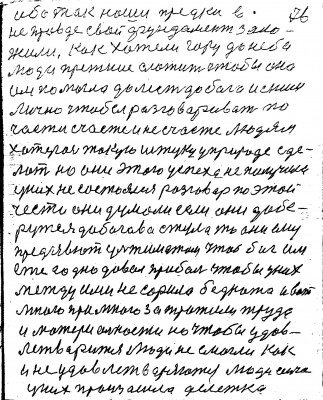 ибо так наши предки в. 76
не правде свой фундамент зало-
жили, как хотели гору до неба
люди прежние сложить чтобы она
им помогла долезть до бога и с ним
лично чтобы разговаривать по
части счастья и несчастье людям
хотели такую штуку у природе сде-
лать но они этого успеха не получили
у них не состоялся разговор по этой
части они думали если они добе-
рутся до бога в стула то они ему
предъявют ультиматом чтоб бог им
еже годно довал прибыл чтобы у них
между ими не сорила беднота и вот
много при много затратили труда
и матери альности но чтобы удов-
летварится люди не смогли как
и не удовлетварялись люди сила
у них произашла дележка